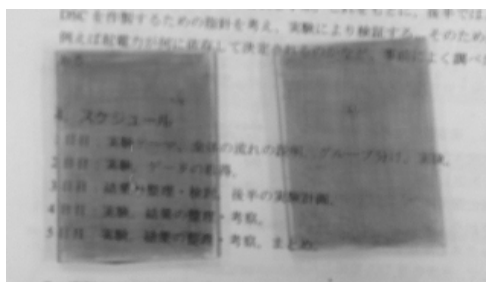 DSC を作製するための指針を考え、実験により検証する。そのため
例えば起電力が何に依存して決定されるのかなど、事前によく調べ
4. スケジュール
1日目：実験テーマ、全体の流れの説明、グループ分け、実験。
2日目：実験、データの取得。
3日目：結果の整理・検討、後半の実験計画。
4日目：実験、結果の整理・考察。
5日目：実験、結果の整理・考察、まとめ。